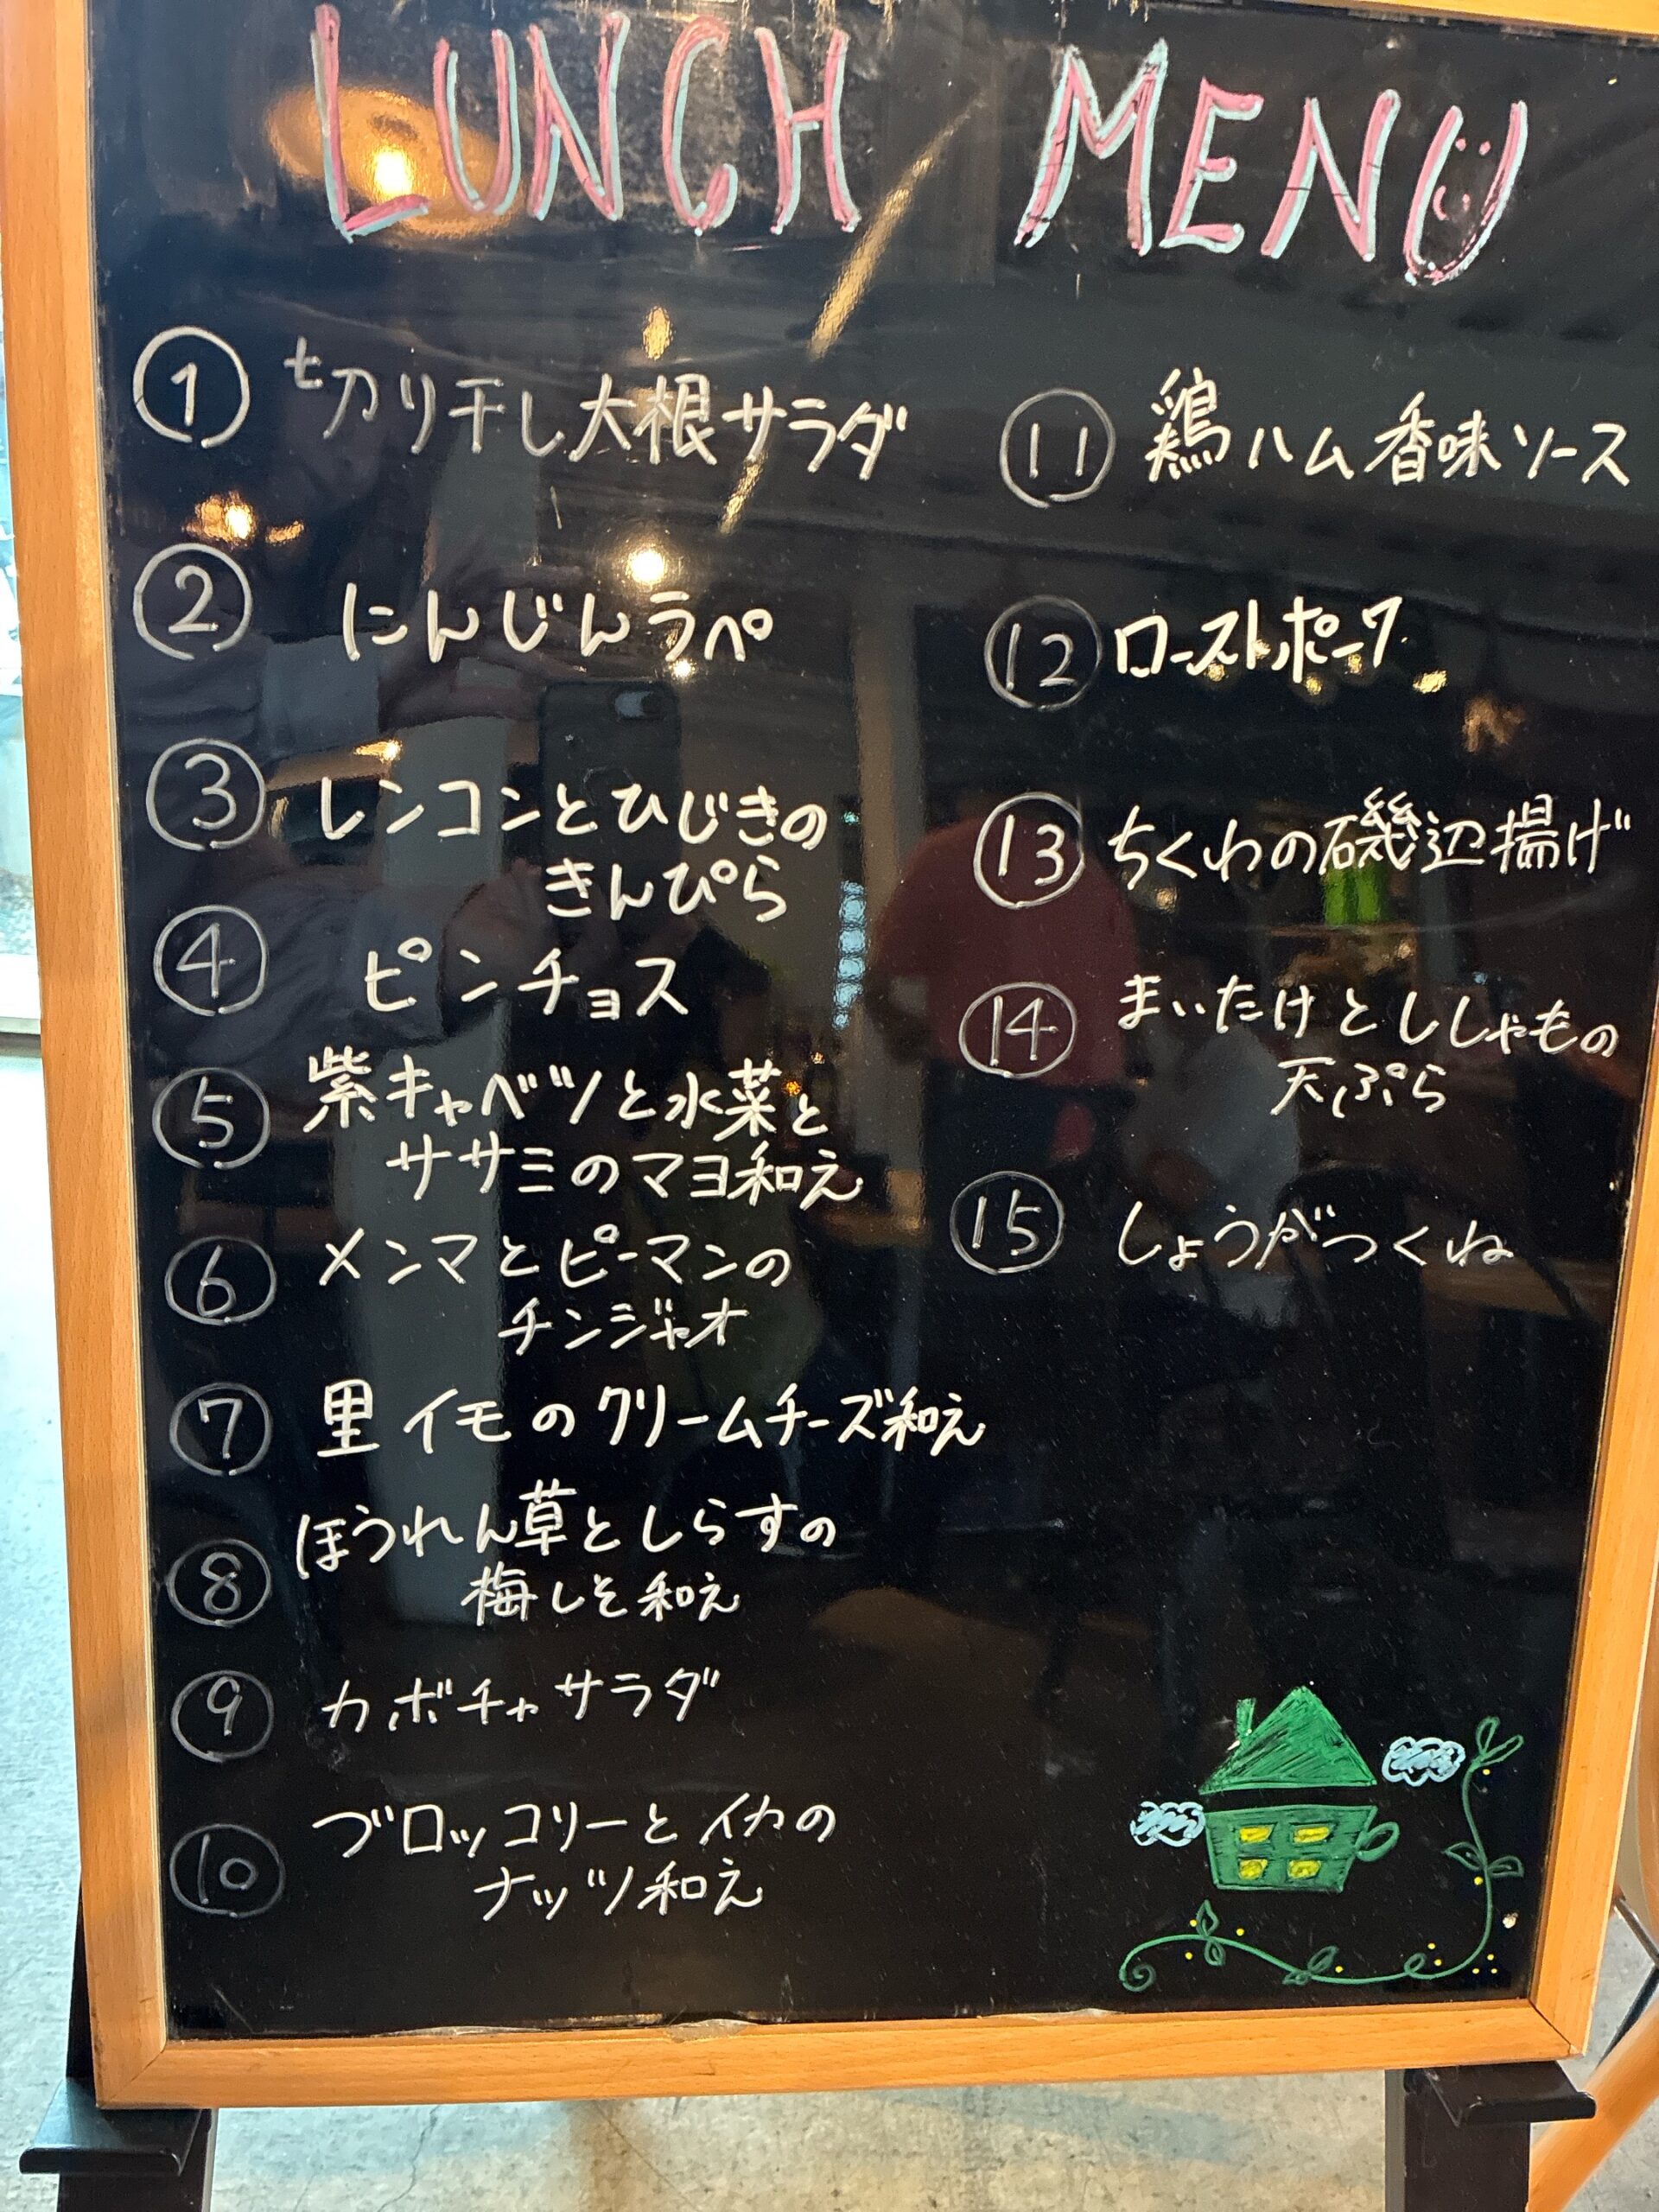 LUNCH MENU
① 切り干し大根サラダ
② にんじんラペ
③ レンコンとひじきの
きんぴら
④ ピンチョス
⑤ 紫キャベツと水菜と
ササミのマヨ和え
⑥ メンマとピーマンの
チンジャオ
⑦ 里イモのクリームチーズ和え
⑧ ほうれん草としらすの
梅しそ和え
⑨ カボチャサラダ
⑩ ブロッコリーとイカの
ナッツ和え
⑪ 鶏ハム香味ソース
⑫ ローストポーク
⑬ ちくわの磯辺揚げ
⑭ まいたけとししゃもの
天ぷら
⑮ しょうがつくね